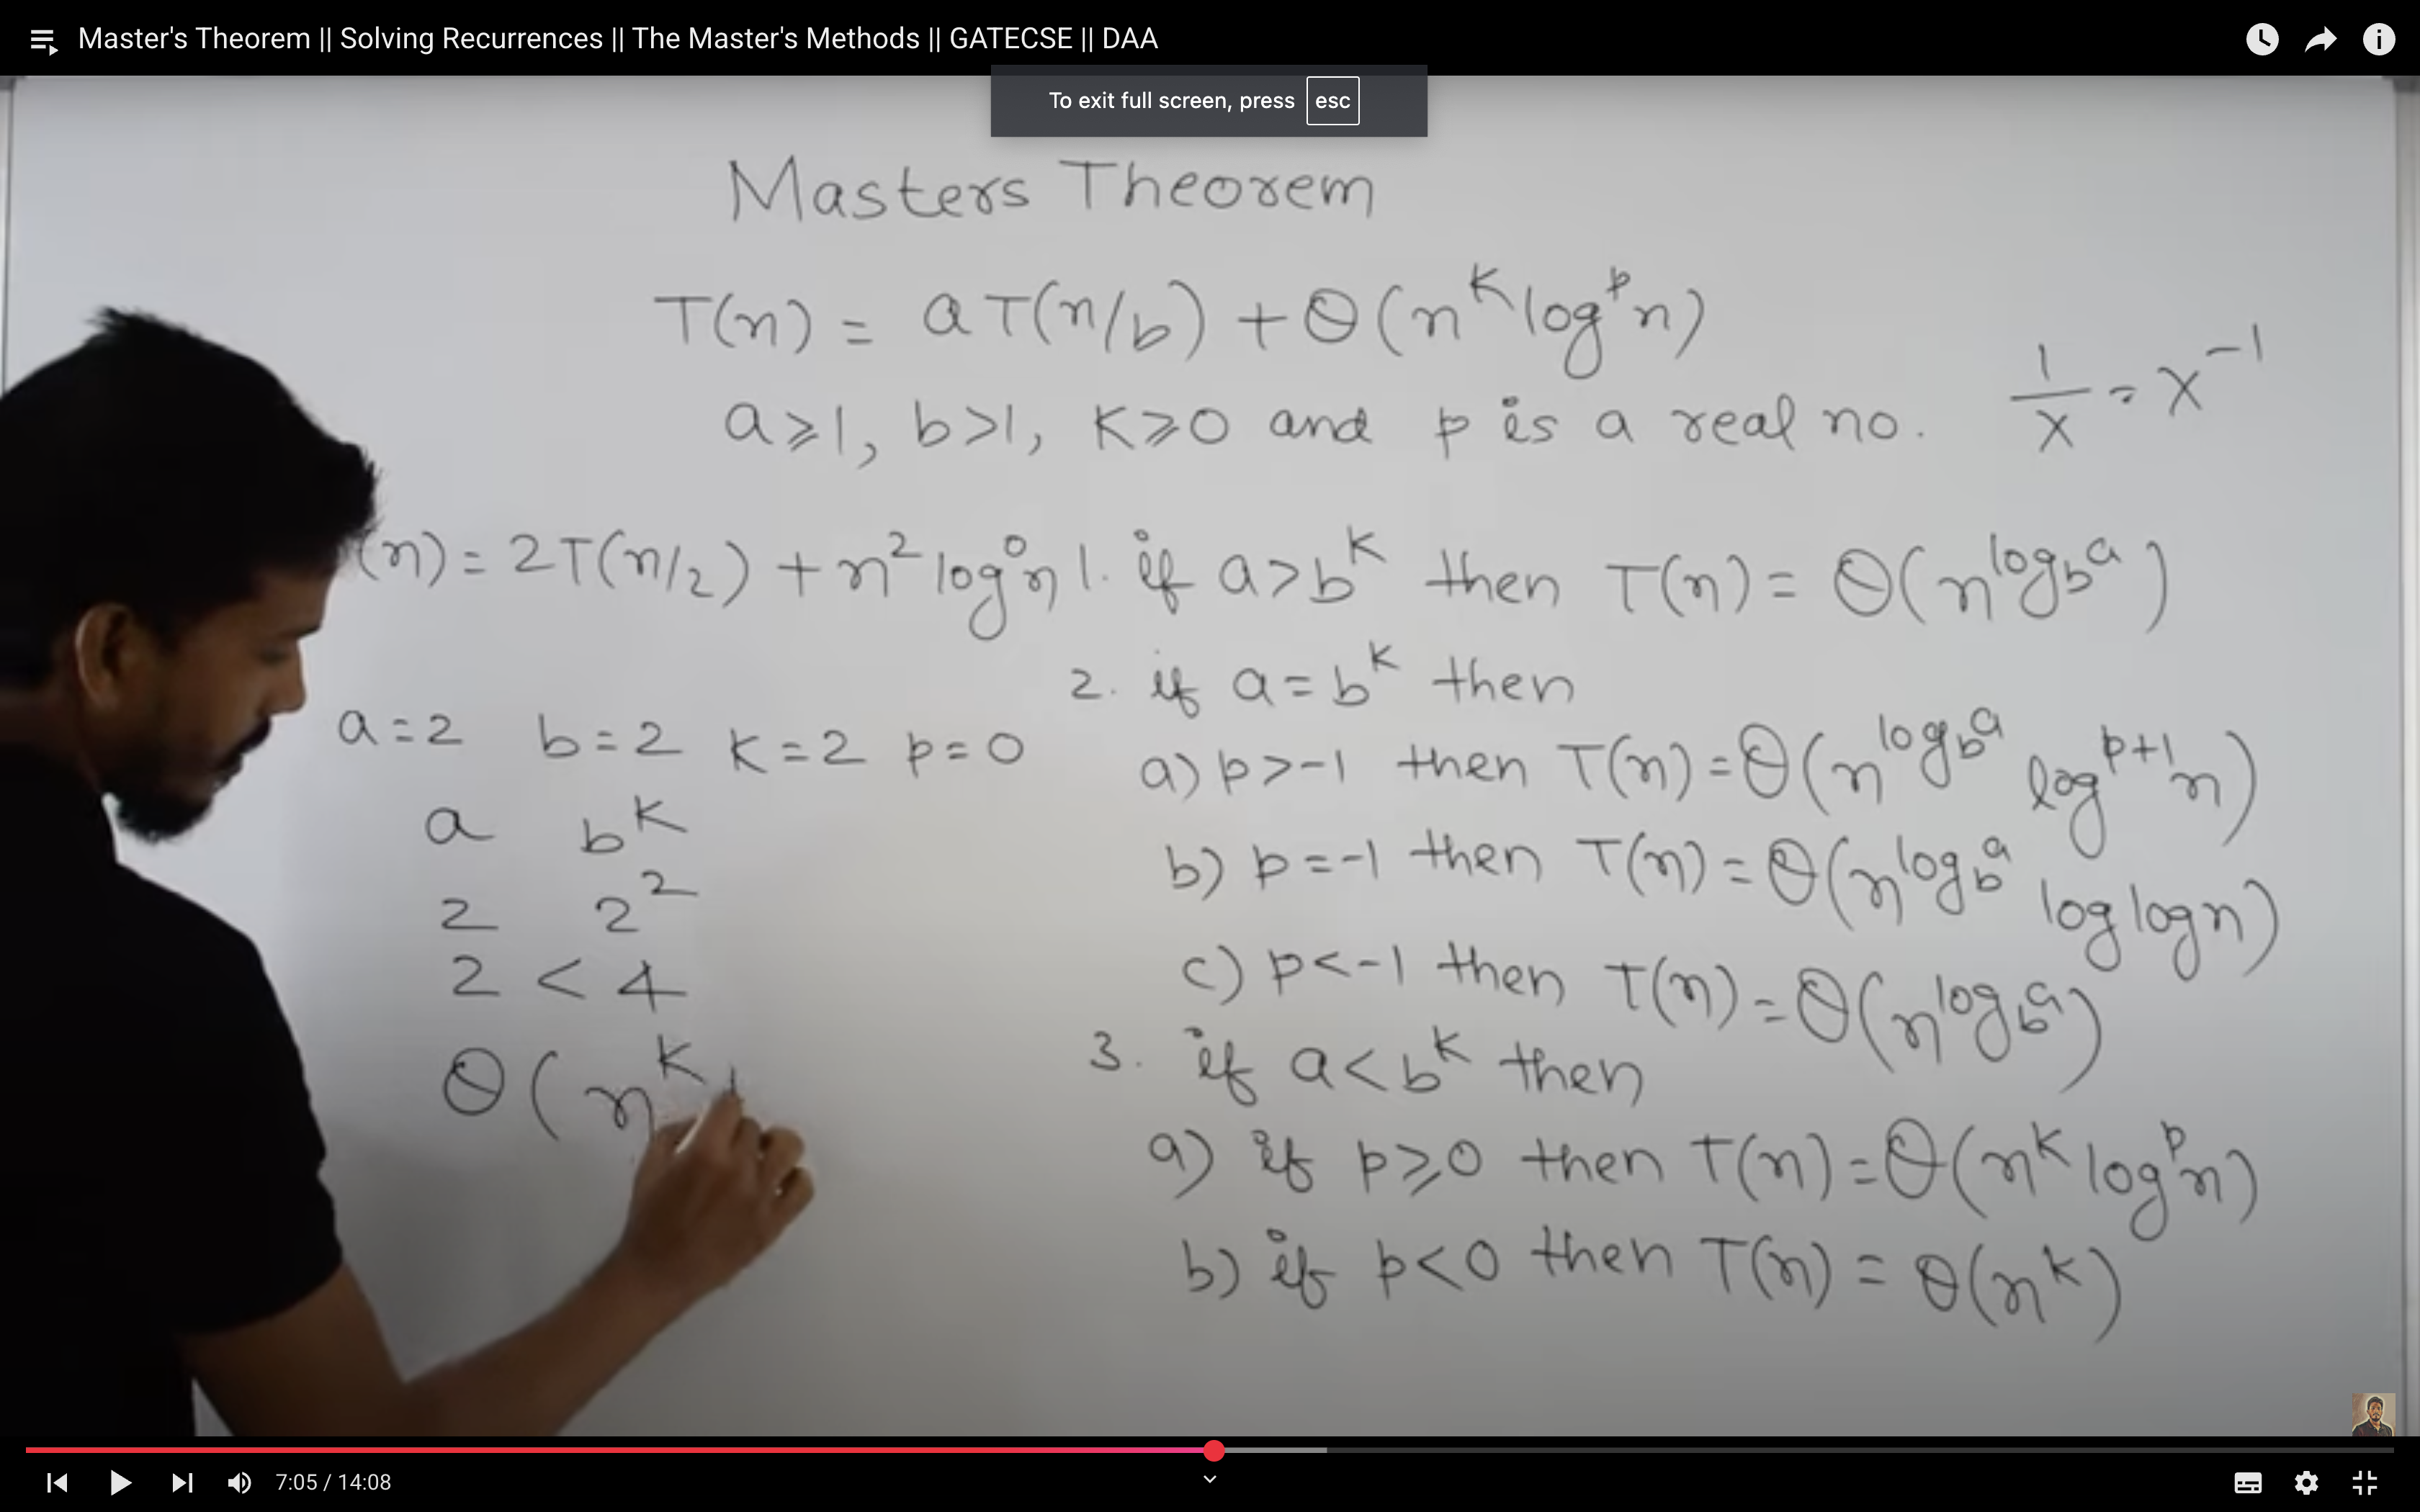 Master's Theorem || Solving Recurrences || The Master's Methods || GATECSE || DAA
To exit full screen, press esc
Masters Theorem
T(n) = aT(n/b) + θ(n^k log^p n)
a≥1, b>1, K≥0 and p is a real no.
1/x = x^-1
(n) = 2T(n/2) + n^2 log^0 n
1. if a>b^k then T(n) = θ(n^log_b a)
2. if a=b^k then
a) p>-1 then T(n) = θ(n^log_b a log^p+1 n)
b) p=-1 then T(n) = θ(n^log_b a log log n)
c) p<-1 then T(n) = θ(n^log_b a)
3. if a<b^k then
a) if p≥0 then T(n) = θ(n^k log^p n)
b) if p<0 then T(n) = θ(n^k)
a=2 b=2 K=2 p=0
a b^k
2 2^2
2 < 4
θ(n^k
7:05 / 14:08